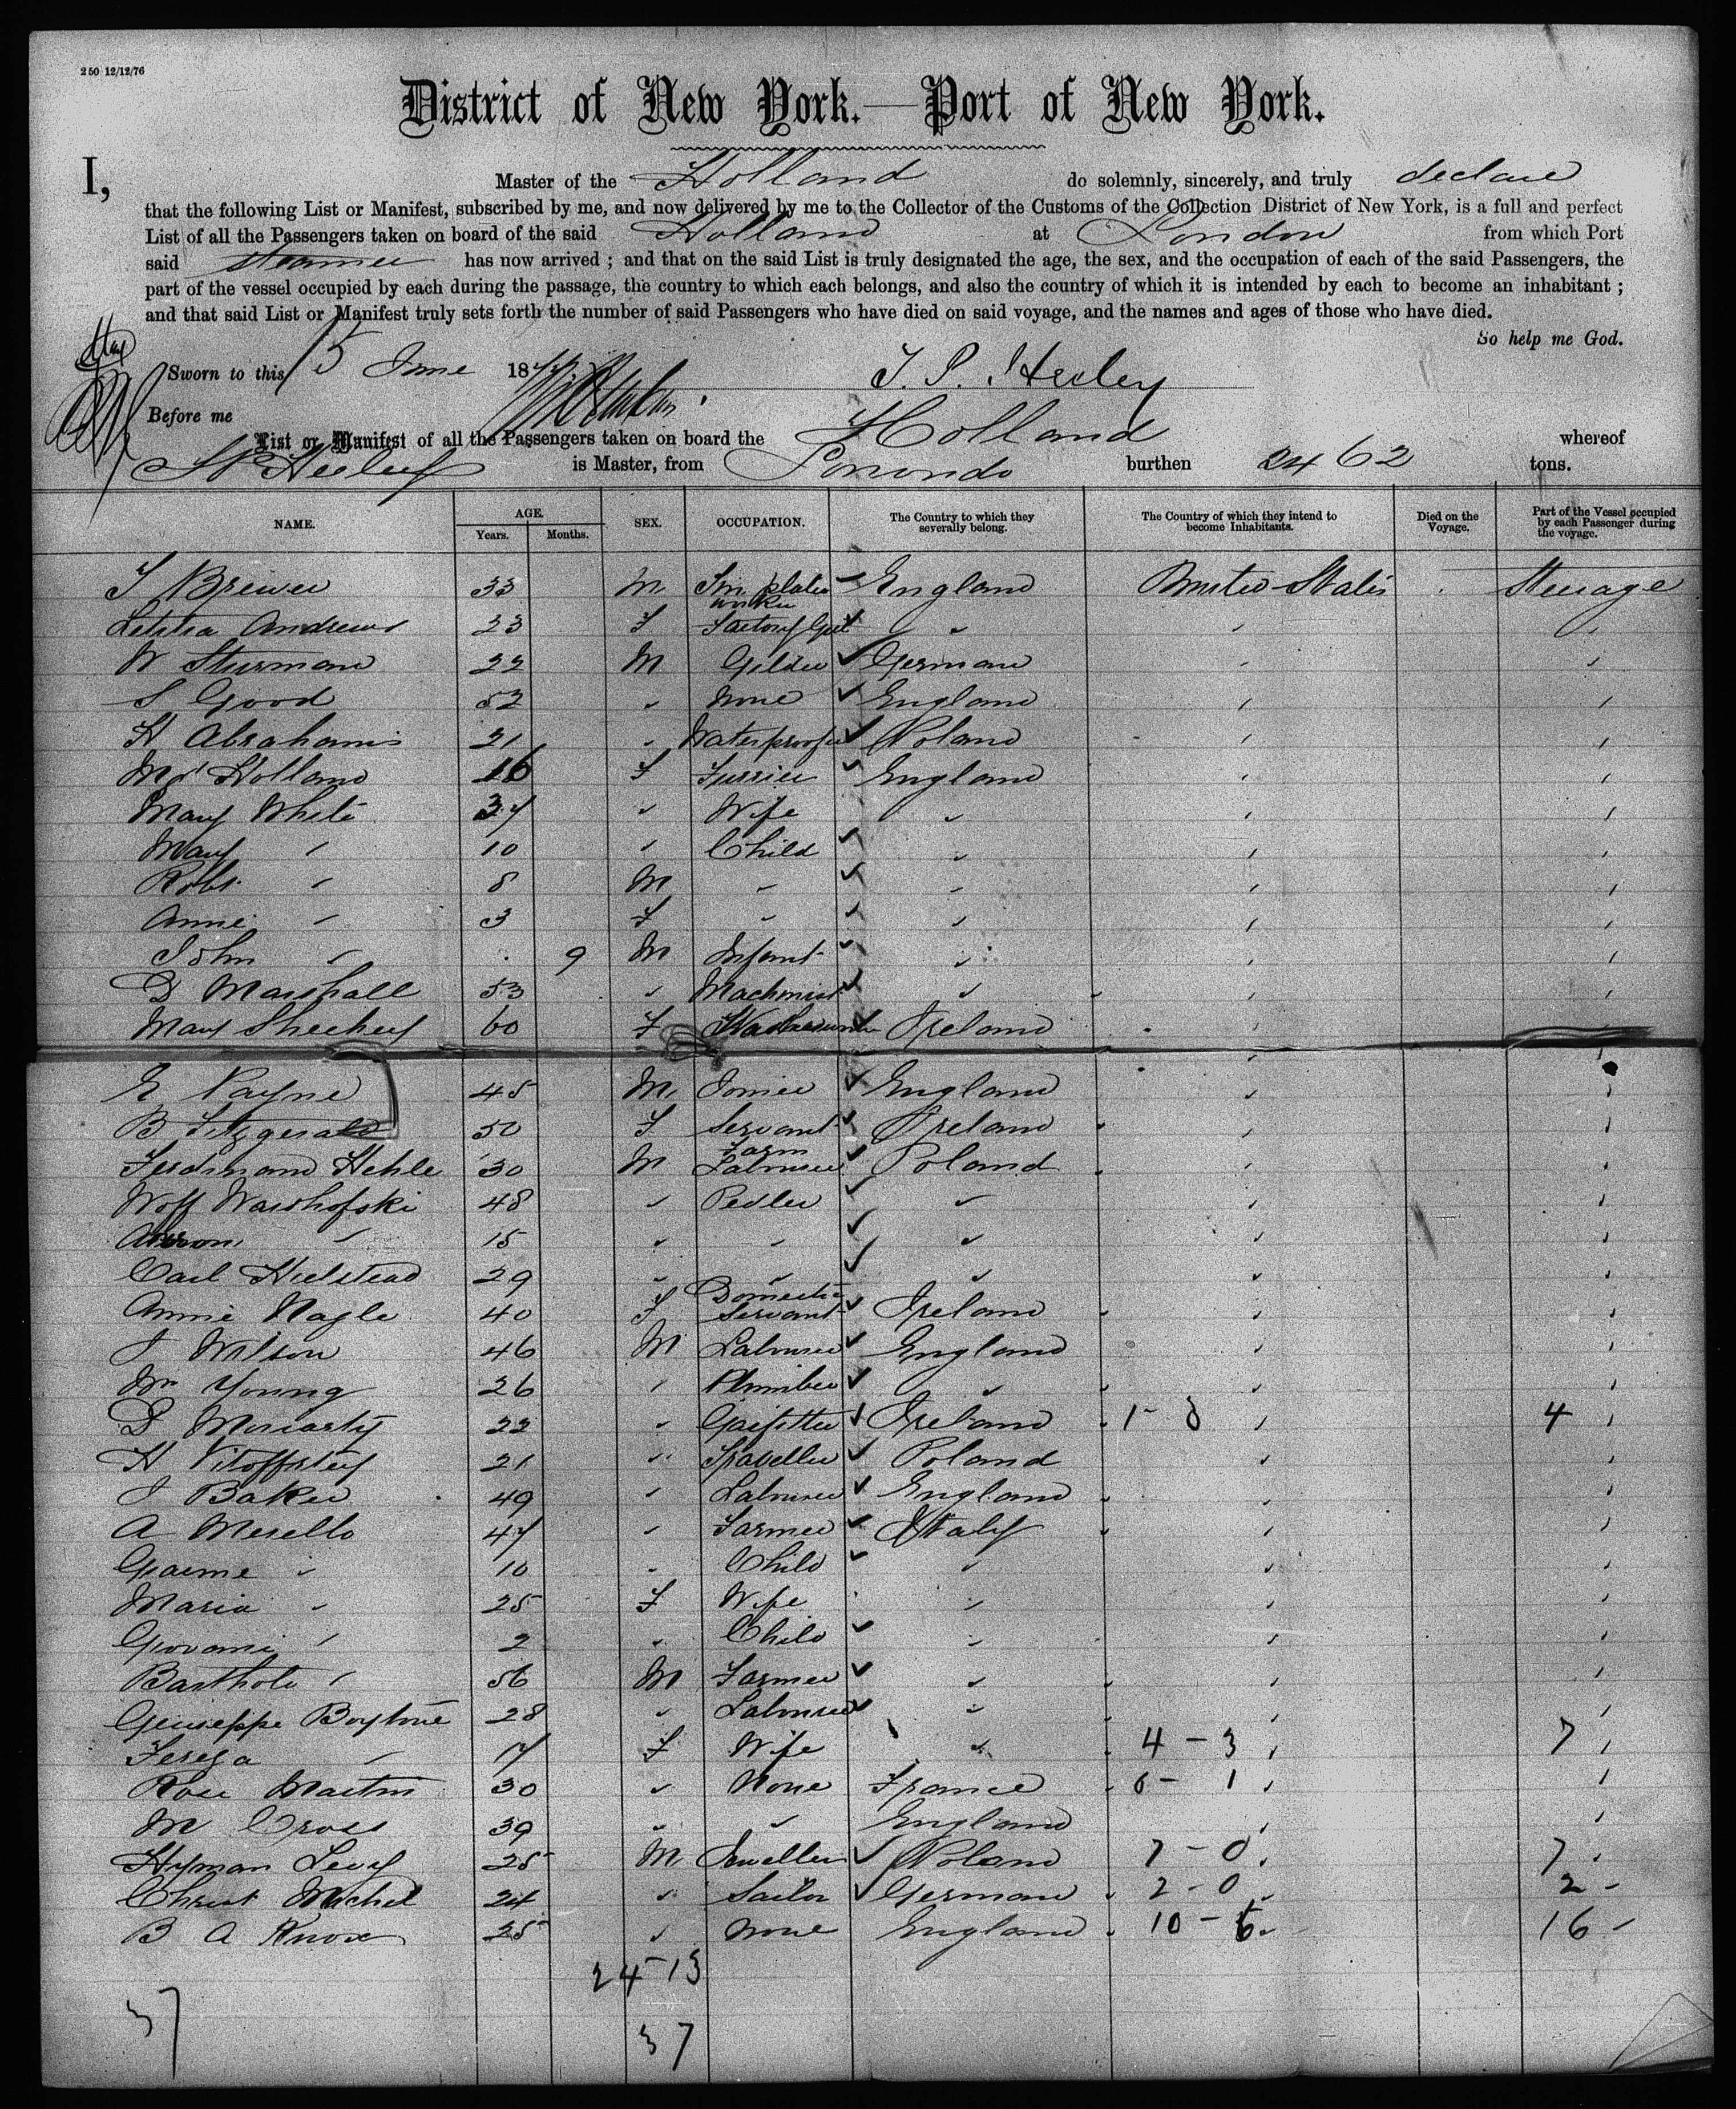 250 12/12/76
District of New York.—Port of New York.
I, Master of the Holland do solemnly, sincerely, and truly declare
that the following List or Manifest, subscribed by me, and now delivered by me to the Collector of the Customs of the Collection District of New York, is a full and perfect
List of all the Passengers taken on board of the said Holland at London from which Port
said steamer has now arrived ; and that on the said List is truly designated the age, the sex, and the occupation of each of the said Passengers, the
part of the vessel occupied by each during the passage, the country to which each belongs, and also the country of which it is intended by each to become an inhabitant ;
and that said List or Manifest truly sets forth the number of said Passengers who have died on said voyage, and the names and ages of those who have died.
So help me God.
Sworn to this 15 June 187 Heeley
Before me
List or Manifest of all the Passengers taken on board the Holland whereof
Heeley is Master, from burthen 2462 tons.
NAME. AGE. Years. Months. SEX. OCCUPATION. The Country to which they severally belong. The Country of which they intend to become Inhabitants. Died on the Voyage. Part of the Vessel occupied by each Passenger during the voyage.
Brewer 33 M Tin plate worker England United States Steerage
Letitia Andrews 23 F Factory Girl "
W Sturman 22 M Gilder German
S Good 52 " None England
H Abrahams 21 " Waterproofer Poland
Holland 16 F Furrier England
Mary White 37 " Wife "
Mary " 10 " Child "
Robt " 8 M " "
Annie " 3 F " "
John " 9 M Infant "
D Marshall 53 " Machinist "
Mary Sheehey 60 F Ireland
E Payne 45 M England
B Fitzgerald 50 F Servant Ireland
Ferdinand Hehle 30 M Farm Labourer Poland
Woff Warshofski 48 " Pedler "
Aaron " 15 " " "
Carl Hielstead 29 " " "
Annie Nagle 40 F Domestic Servant Ireland
J Wilson 46 M Labourer England
Wm Young 26 " Plumber "
D Moriarty 22 " Gasfitter Ireland 1 - 8 4
H 21 " Traveller Poland
J Baker 49 " Labourer England
A Merello 47 " Farmer Italy
" 10 " Child "
Maria " 25 F Wife "
Giovani " 2 " Child "
Bartholo " 56 M Farmer "
Giuseppe 28 " Labourer "
Teresa " 17 F Wife " 4 - 3 7
Rose Martin 30 " None France 0 - 1
M Cross 39 " " England
Hyman Levy 25 M Jeweller Poland 7 - 0 7
Christ Michel 24 " Sailor German 2 - 0 2
B A Knox 25 " None England 10 - 6 16
24-13
37 37